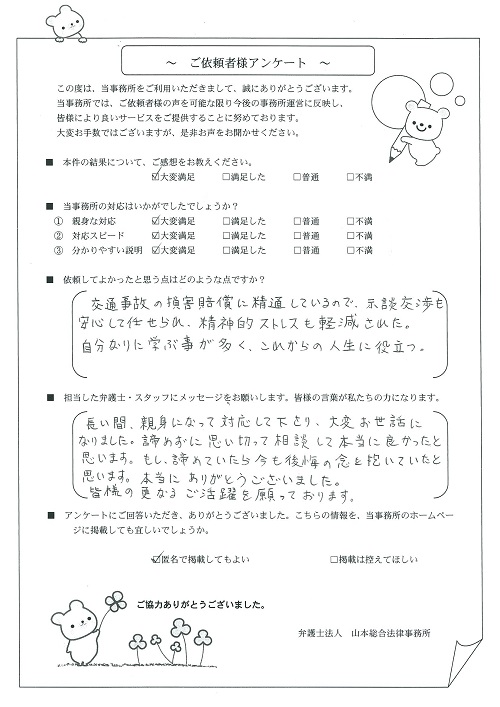 ～ ご依頼者様アンケート ～
この度は、当事務所をご利用いただきまして、誠にありがとうございます。
当事務所では、ご依頼者様の声を可能な限り今後の事務所運営に反映し、
皆様により良いサービスをご提供することに努めております。
大変お手数ではございますが、是非お声をお聞かせください。
■ 本件の結果について、ご感想をお教えください。
☑大変満足 □満足した □普通 □不満
■ 当事務所の対応はいかがでしたでしょうか？
① 親身な対応 ☑大変満足 □満足した □普通 □不満
② 対応スピード ☑大変満足 □満足した □普通 □不満
③ 分かりやすい説明 ☑大変満足 □満足した □普通 □不満
■ 依頼してよかったと思う点はどのような点ですか？
交通事故の損害賠償に精通しているので、示談交渉も
安心して任せられ、精神的ストレスも軽減された。
自分なりに学ぶ事が多く、これからの人生に役立つ。
■ 担当した弁護士・スタッフにメッセージをお願いします。皆様の言葉が私たちの力になります。
長い間、親身になって対応して下さり、大変お世話に
なりました。諦めずに思い切って相談して本当に良かったと
思います。もし、諦めていたら今も後悔の念を抱いていたと
思います。本当にありがとうございました。
皆様の更なるご活躍を願っております。
■ アンケートにご回答いただき、ありがとうございました。こちらの情報を、当事務所のホームペー
ジに掲載しても宜しいでしょうか。
☑匿名で掲載してもよい □掲載は控えてほしい
ご協力ありがとうございました。
弁護士法人 山本総合法律事務所